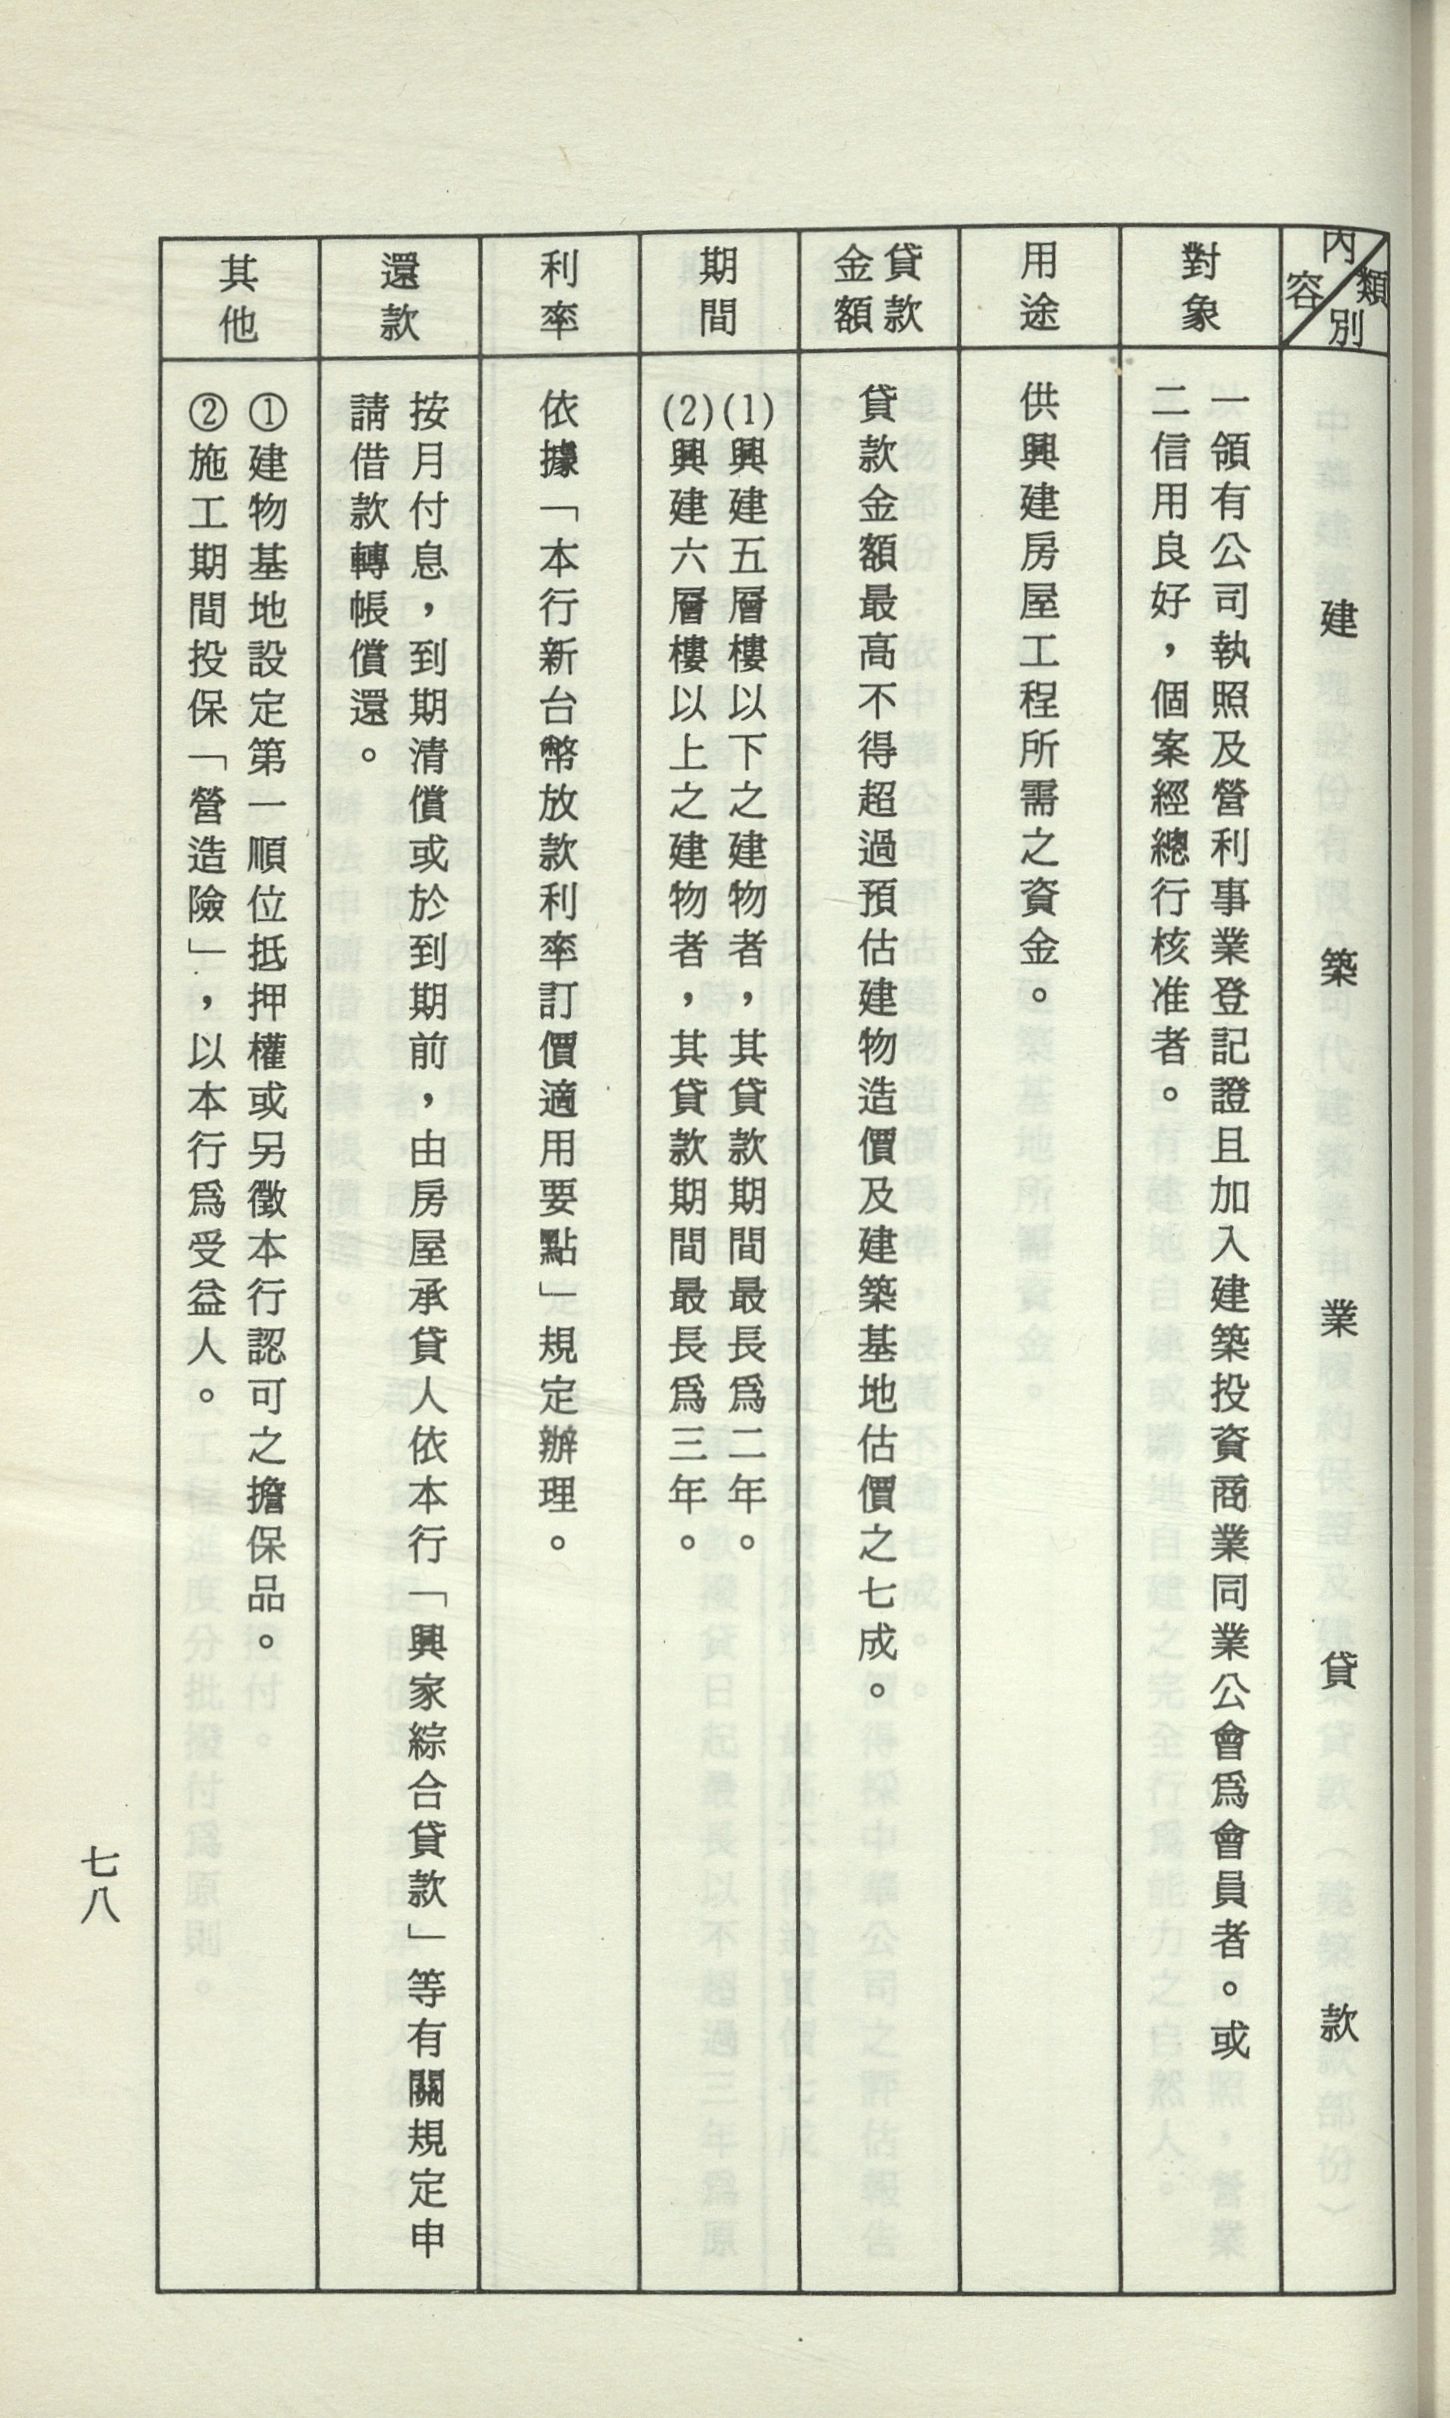 內容
類別
建築業貸款
對象
一領有公司執照及營利事業登記證且加入建築投資商業同業公會爲會員者。或
二信用良好，個案經總行核准者。
用途
供興建房屋工程所需之資金。
貸款
金額
貸款金額最高不得超過預估建物造價及建築基地估價之七成。
期間
(1)興建五層樓以下之建物者，其貸款期間最長爲二年。
(2)興建六層樓以上之建物者，其貸款期間最長爲三年。
利率
依據「本行新台幣放款利率訂價適用要點」規定辦理。
還款
按月付息，到期清償或於到期前，由房屋承貸人依本行「興家綜合貸款」等有關規定申
請借款轉帳償還。
其他
①建物基地設定第一順位抵押權或另徵本行認可之擔保品。
②施工期間投保「營造險」，以本行爲受益人。
七八